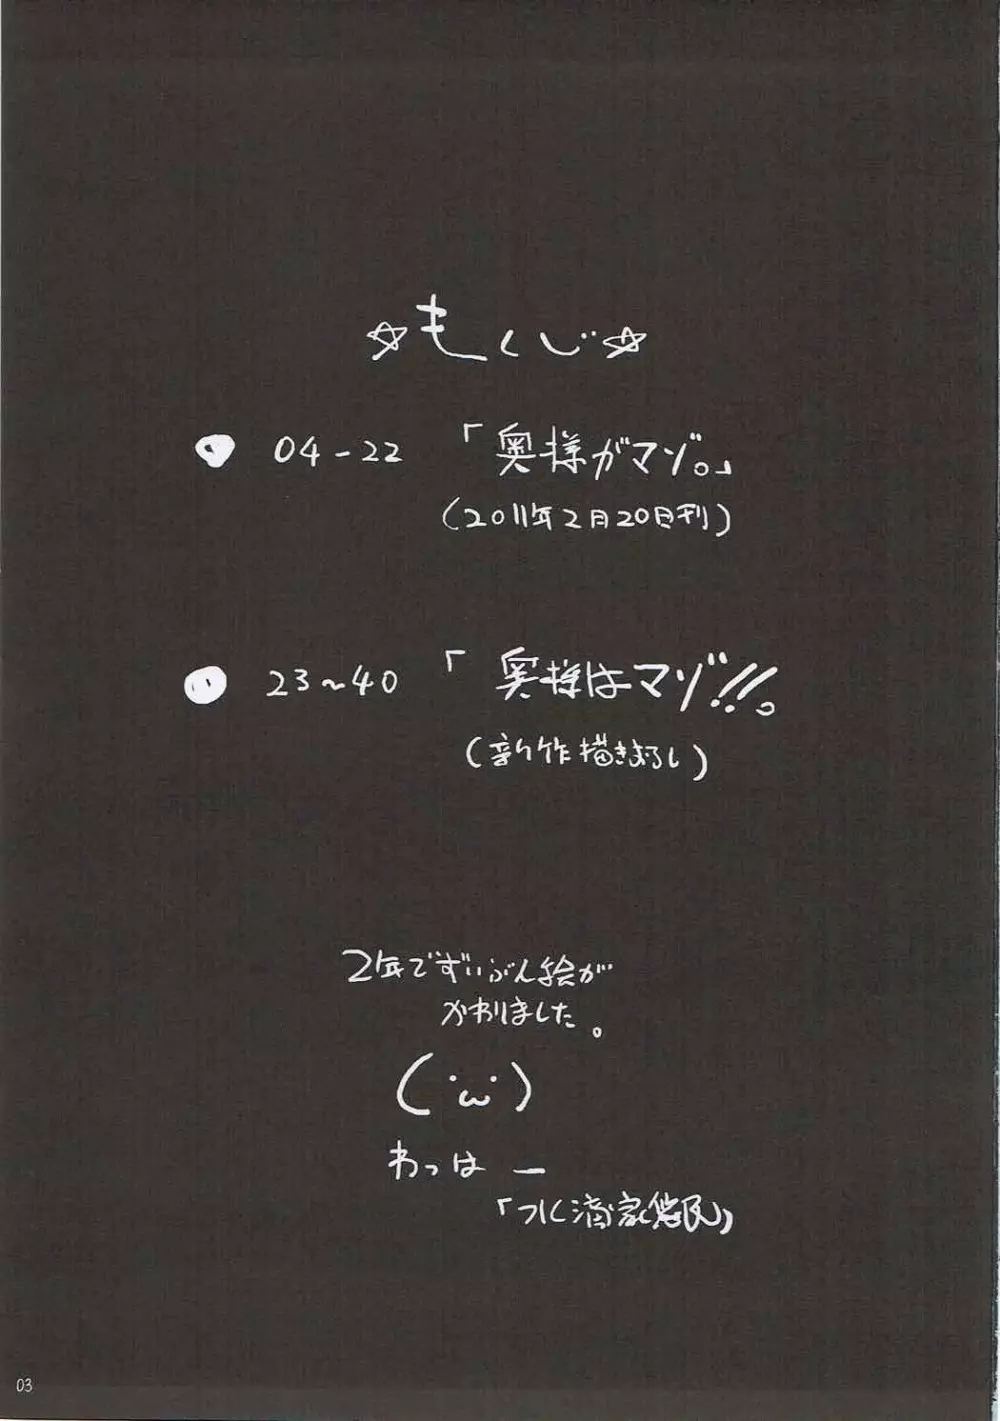 ☆もくじ☆
04-22 「奥様がマゾ。」
(2011年2月20日刊)
23~40 「奥様はマゾ!!。
(新作描きおろし)
2年でずいぶん絵が
かわりました。
(˙ω˙)
わっはー
03